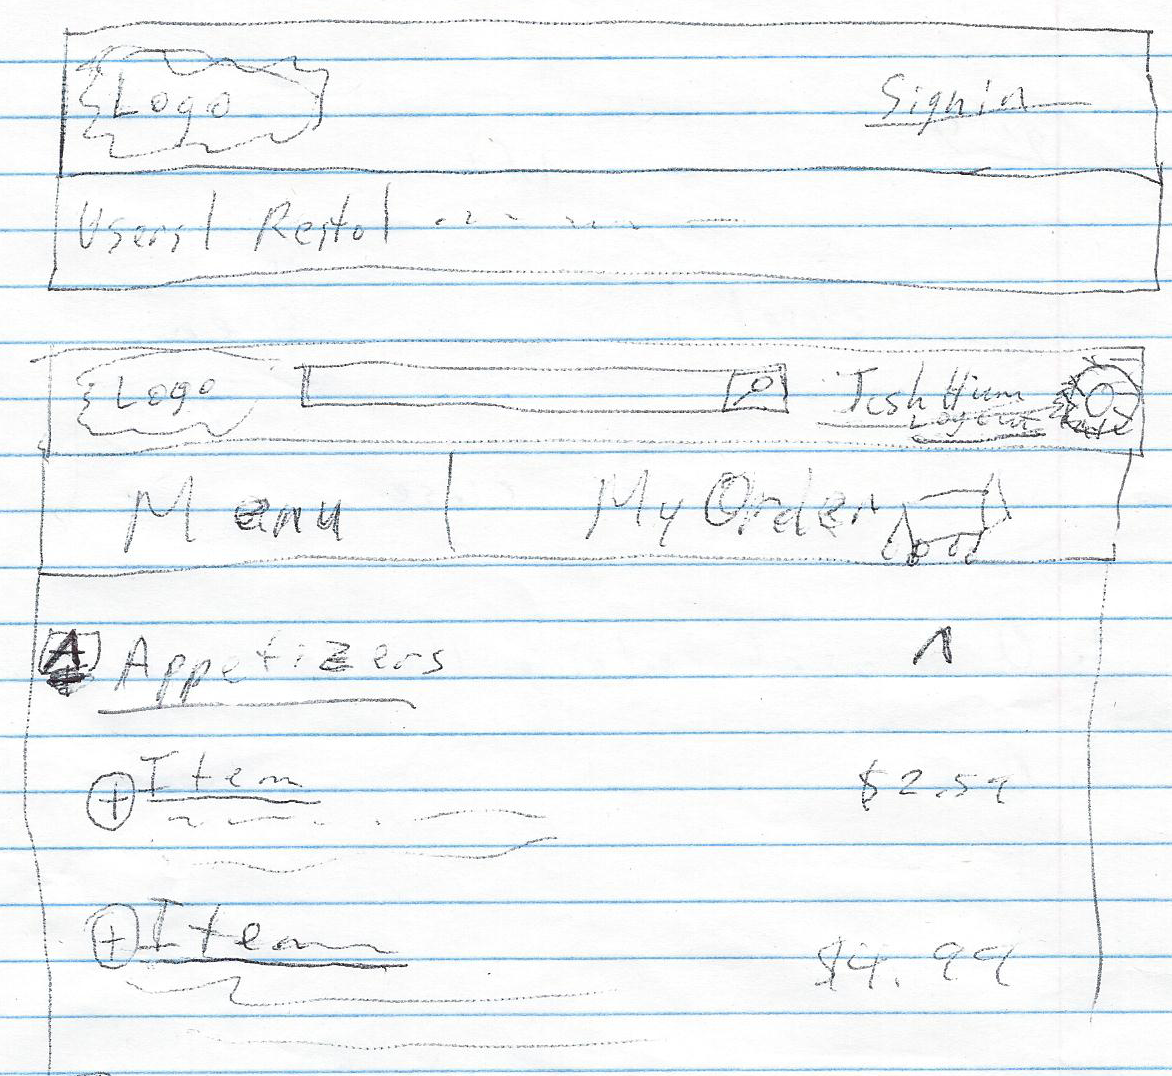 Logo Signin
Users | Resto |
Logo Josh Hium
Logout
Menu | My Order
Appetizers
+ Item $2.59
+ Item $4.99